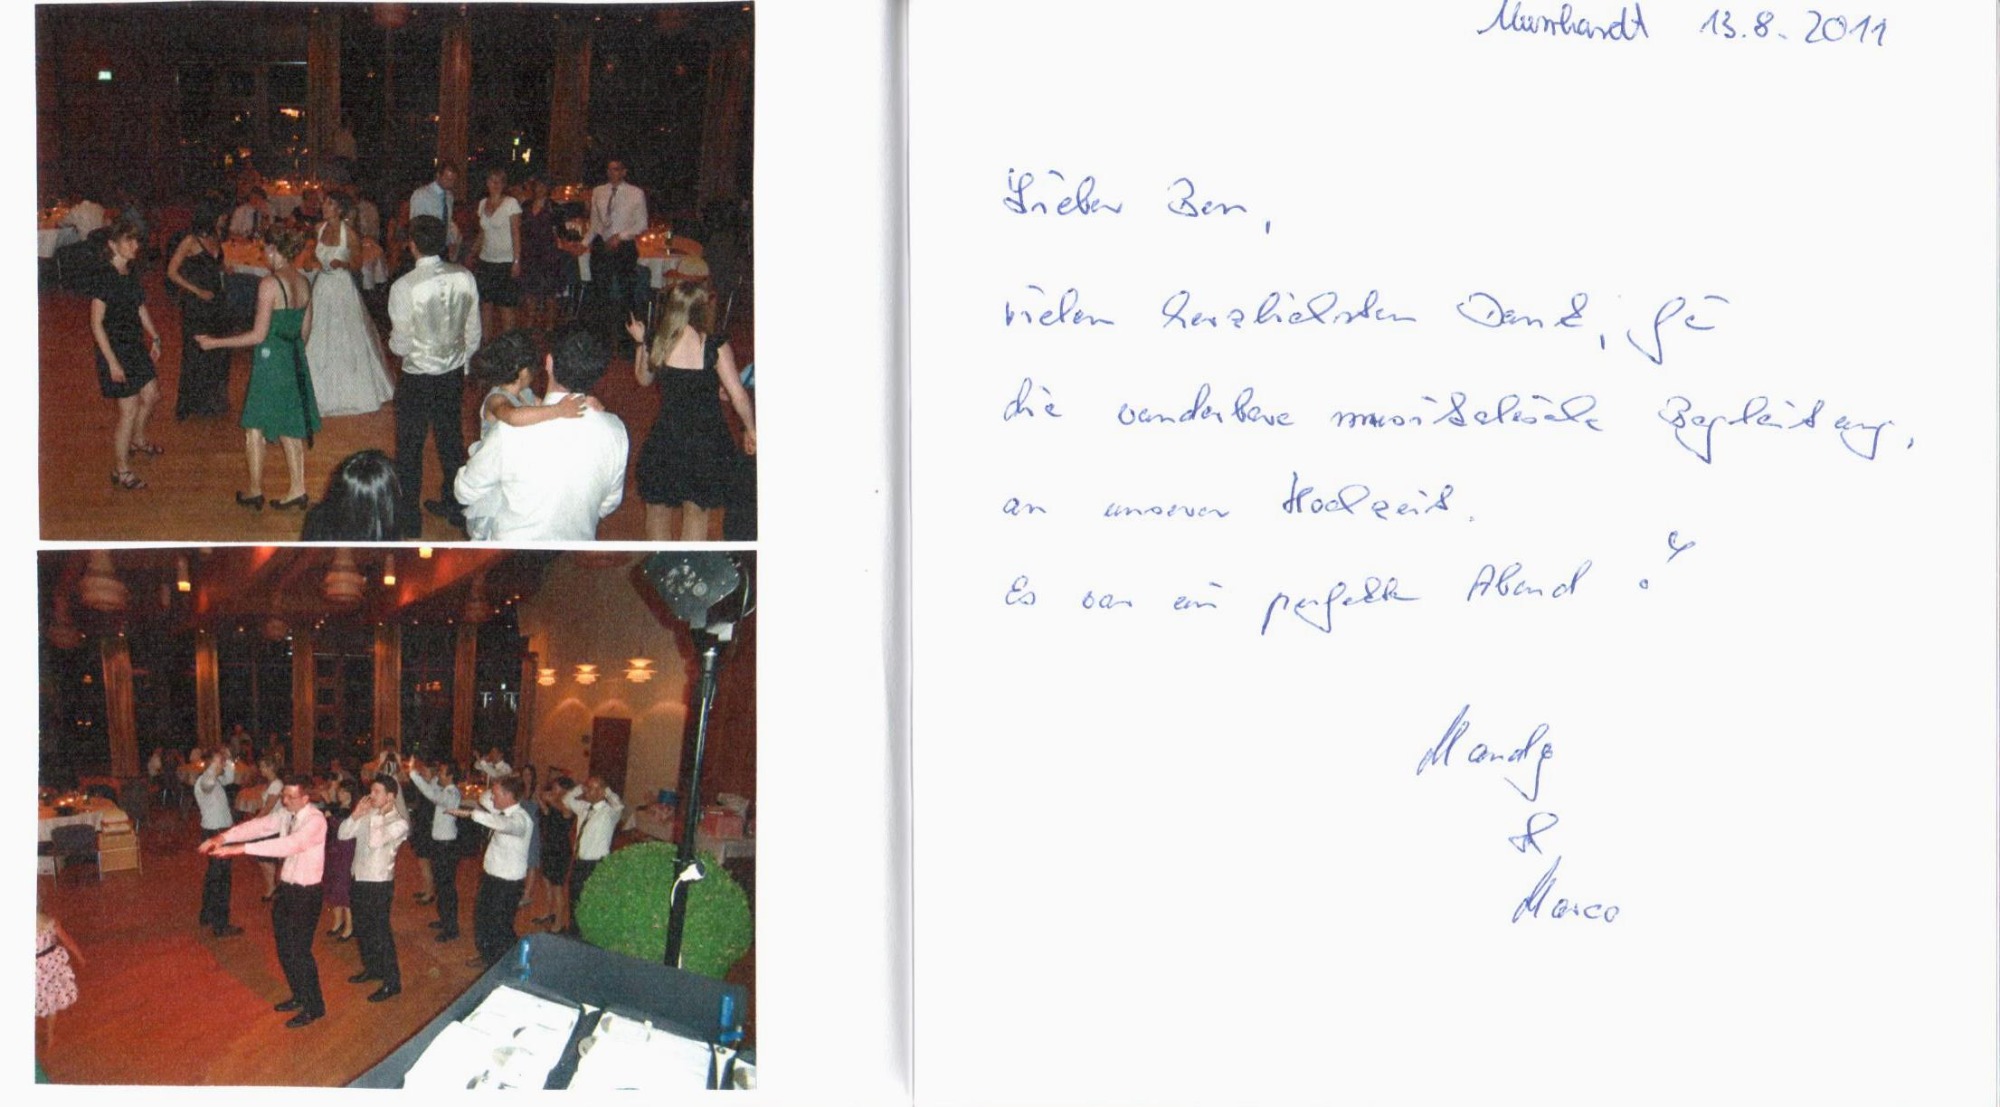 Murrhardt 13.8.2011
Lieber Ben,
vielen herzlichsten Dank, für
die wunderbare musikalische Begleitung,
an unserer Hochzeit.
Es war ein perfekter Abend!
Mandy
&
Marco